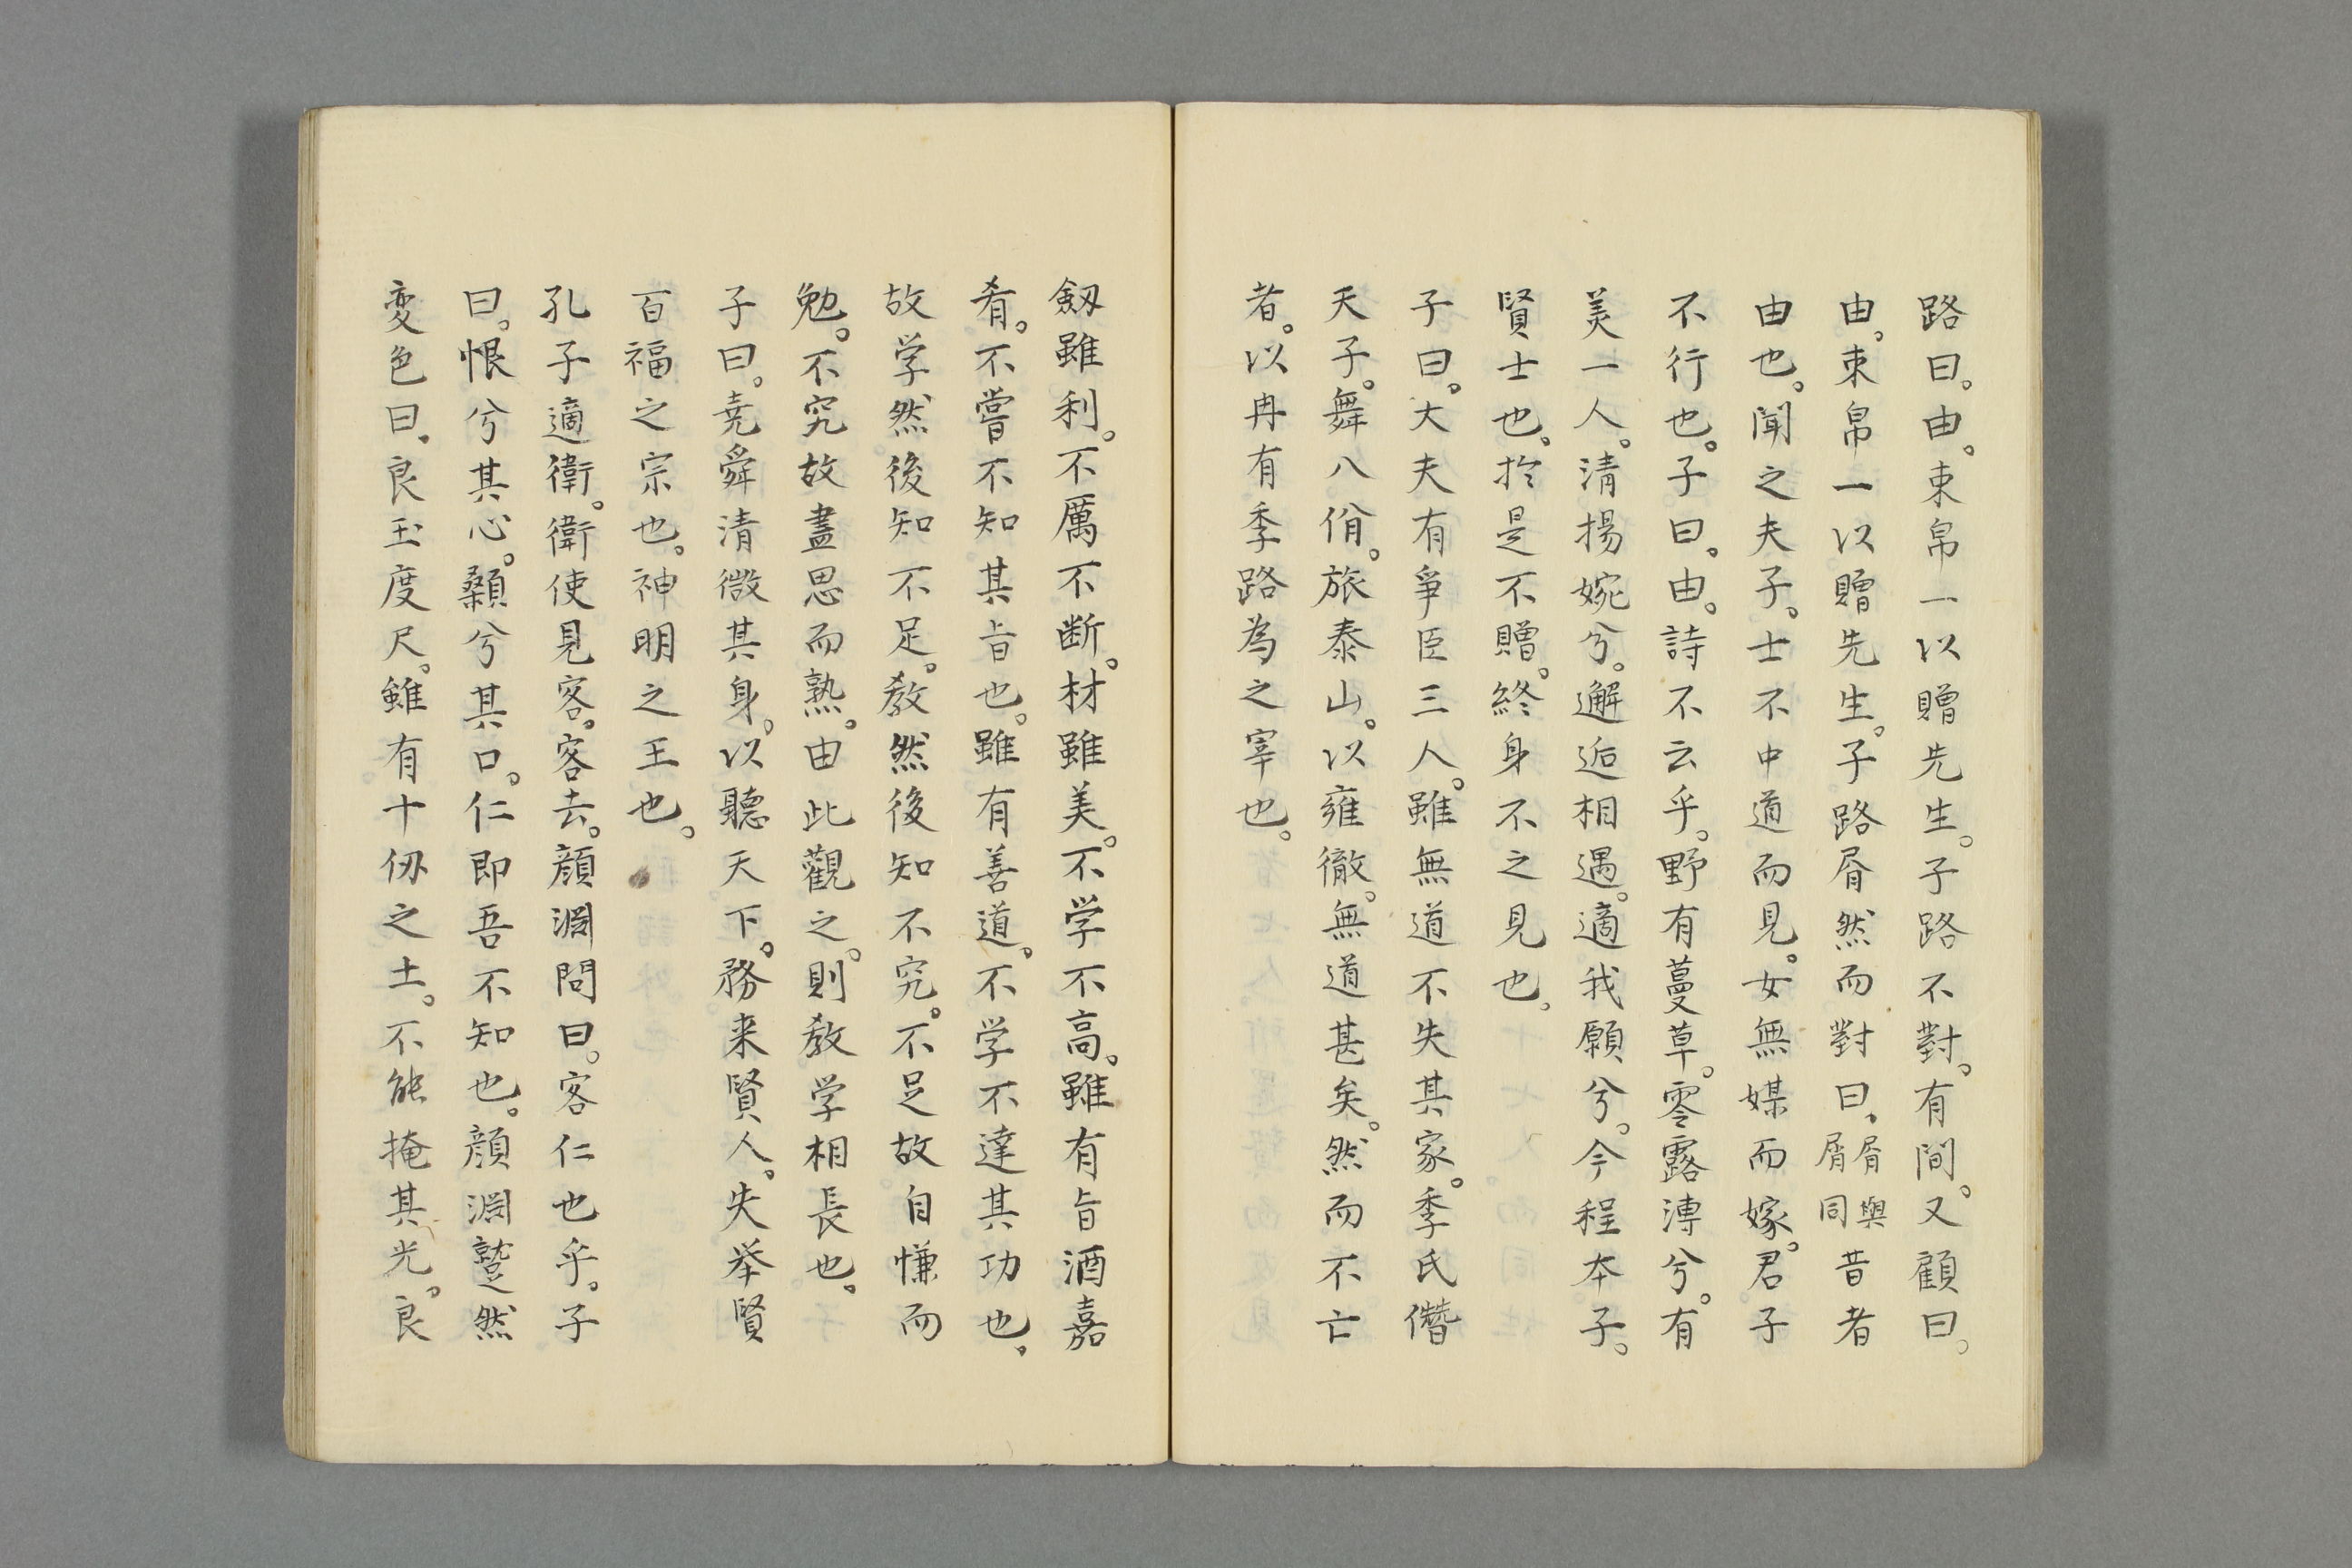 路曰。由。束帛一以贈先生。子路不對。有間。又顧曰。
由。束帛一以贈先生。子路屑然而對曰。屑與屑同昔者
由也。聞之夫子。士不中道而見。女無媒而嫁。君子
不行也。子曰。由。詩不云乎。野有蔓草。零露漙兮。有
美一人。清揚婉兮。邂逅相遇。適我願兮。今程本子。
賢士也。於是不贈。終身不之見也。
子曰。大夫有爭臣三人。雖無道不失其家。季氏僭
天子。舞八佾。旅泰山。以雍徹。無道甚矣。然而不亡
者。以冉有季路為之宰也。
劔雖利。不厲不断。材雖美。不学不高。雖有旨酒嘉
肴。不嘗不知其旨也。雖有善道。不学不達其功也。
故学然後知不足。教然後知不究。不足故自慊而
勉。不究故盡思而熟。由此觀之。則教学相長也。
子曰。尭舜清微其身。以聽天下。務来賢人。失举賢
百福之宗也。神明之王也。
孔子適衛。衛使見客。客去。顔淵問曰。客仁也乎。子
曰。恨兮其心。顙兮其口。仁即吾不知也。顔淵蹵然
変色曰。良玉度尺。雖有十仞之土。不能掩其光。良